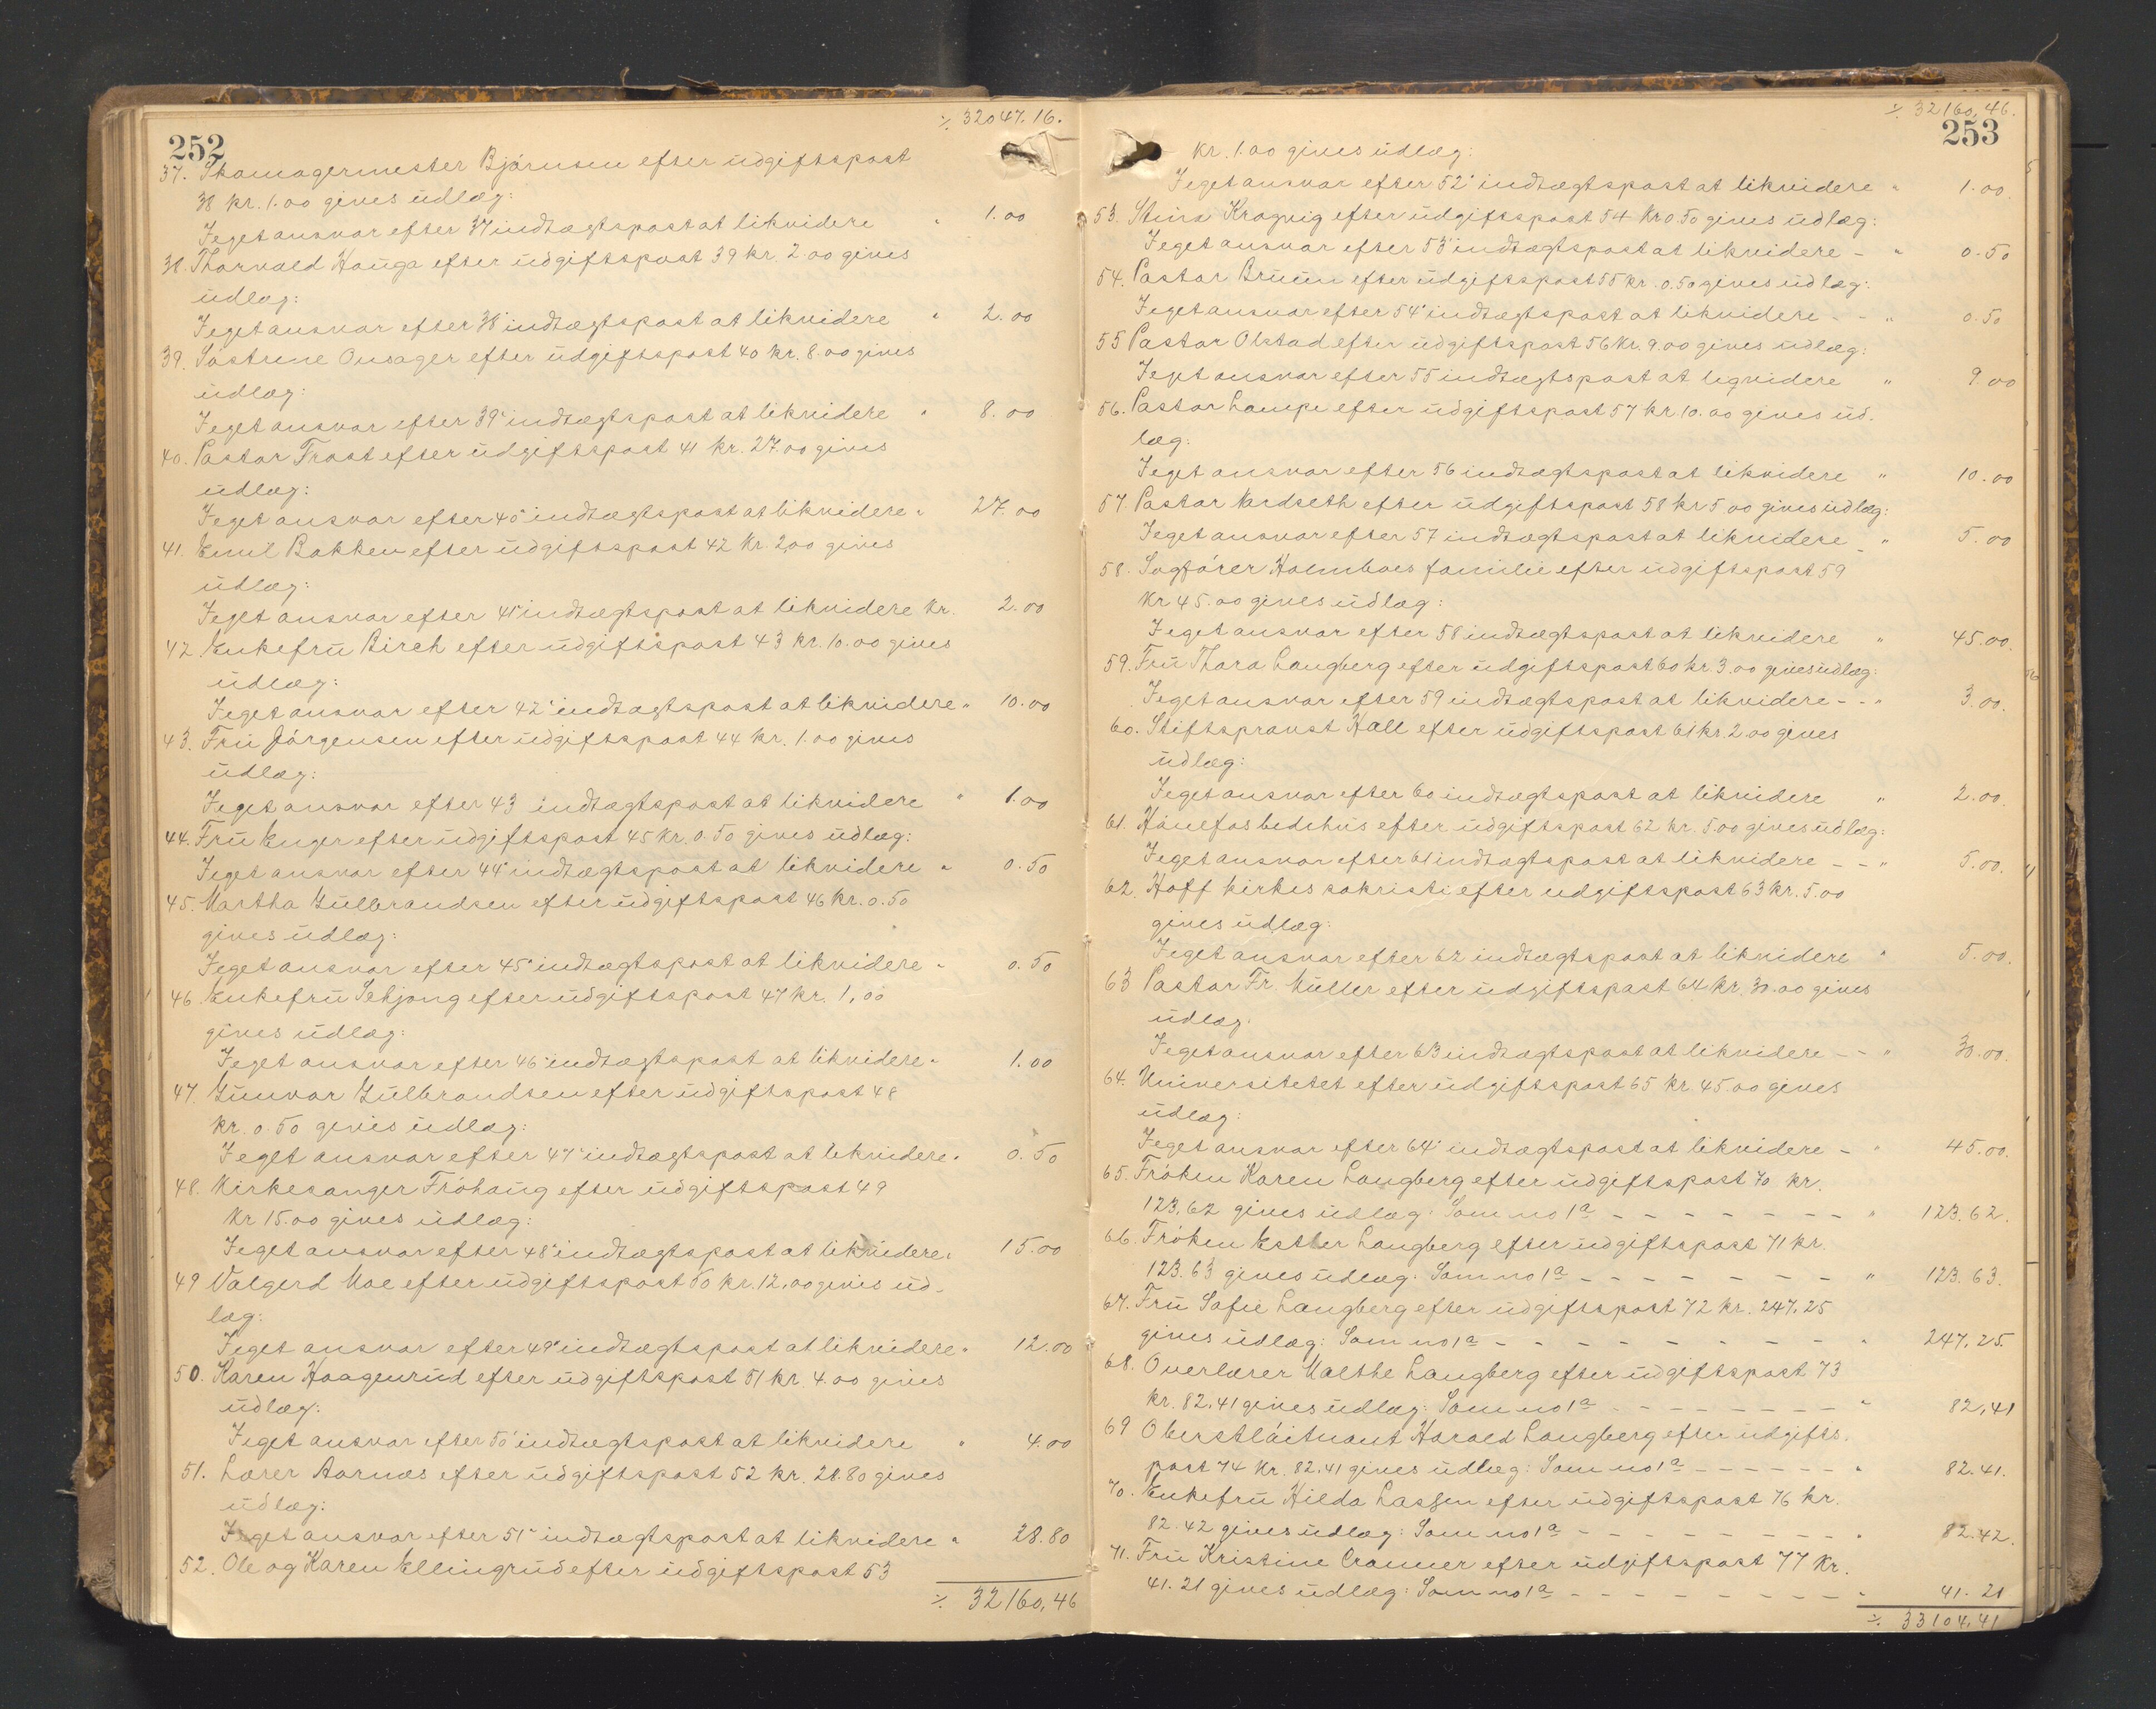 ÷ 32047.16.
252
37. Skomagermester Björnsen efter udgiftspost
38 kr. 1.00 gives udlæg:
I eget ansvar efter 37 indtægtspost at likvidere " 1.00
38. Thorvald Hauga efter udgiftspost 39 kr. 2.00 gives
udlæg:
I eget ansvar efter 38' indtægtspost at likvidere " 2.00
39. Söstrene Onsager efter udgiftspost 40 kr. 8.00 gives
udlæg:
I eget ansvar efter 39' indtægtspost at likvidere " 8.00
40. Pastor Trast efter udgiftspost 41 kr. 27.00 gives
udlæg:
I eget ansvar efter 40' indtægtspost at likvidere " 27.00
41. Emil Bakken efter udgiftspost 42 kr. 2.00 gives
udlæg:
I eget ansvar efter 41' indtægtspost at likvidere kr. 2.00
42 Enkefru Birch efter udgiftspost 43 kr. 10.00 gives
udlæg:
I eget ansvar efter 42' indtægtspost at likvidere " 10.00
43. Fru Jörgensen efter udgiftspost 44 kr. 1.00 gives
udlæg:
I eget ansvar efter 43 indtægtspost at likvidere " 1.00
44. Fru Enger efter udgiftspost 45 kr. 0.50 gives udlæg:
I eget ansvar efter 44' indtægtspost at likvidere " 0.50
45. Martha Gulbrandsen efter udgiftspost 46 kr. 0.50
gives udlæg:
I eget ansvar efter 45' indtægtspost at likvidere " 0.50
46. Enkefru Sehjong efter udgiftspost 47 kr. 1,00
gives udlæg:
I eget ansvar efter 46' indtægtspost at likvidere " 1.00
47. Gunvor Gulbrandsen efter udgiftspost 48
kr. 0.50 gives udlæg:
I eget ansvar efter 47' indtægtspost at likvidere " 0.50
48. Kirkesanger Fröhaug efter udgiftspost 49
kr 15.00 gives udlæg:
I eget ansvar efter 48' indtægtspost at likvidere " 15.00
49 Valgerd Moe efter udgiftspost 50 kr. 12.00 gives ud-
læg:
I eget ansvar efter 49' indtægtspost at likvidere " 12.00
50. Karen Haagenrud efter udgiftspost 51 kr. 4.00 gives
udlæg:
I eget ansvar efter 50' indtægtspost at likvidere " 4.00
51. Lærer Aarnæs efter udgiftspost 52 kr. 28.80 gives
udlæg:
I eget ansvar efter 51' indtægtspost at likvidere " 28.80
52. Ole og Karen Ellingrud efter udgiftspost 53
÷ 32160,46
÷ 32160,46.
253
kr. 1.00 gives udlæg:
I eget ansvar efter 52' indtægtspost at likvidere " 1.00.
53. Stina Kragvig efter udgiftspost 54 kr 0.50 gives udlæg:
I eget ansvar efter 53' indtægtspost at likvidere - " 0.50
54. Pastor Bruun efter udgiftspost 55 kr. 0.50 gives udlæg:
I eget ansvar efter 54' indtægtspost at likvidere - - " 0.50
55 Pastor Olstad efter udgiftspost 56 kr. 9.00 gives udlæg:
I eget ansvar efter 55 indtægtspost at liqvidere " 9.00
56. Pastor Lampe efter udgiftspost 57 kr. 10.00 gives ud-
læg:
I eget ansvar efter 56 indtægtspost at likvidere " 10.00
57. Pastor Nordseth efter udgiftspost 58 kr 5.00 gives udlæg:
I eget ansvar efter 57 indtægtspost at likvidere - " 5.00
58. Sagförer Holmboes familie efter udgiftspost 59
kr 45.00 gives udlæg:
I eget ansvar efter 58 indtægtspost at likvidere " 45.00.
59. Fru Thora Langberg efter udgiftspost 60 kr. 3.00 gives udlæg:
I eget ansvar efter 59 indtægtspost at likvidere - - " 3.00.
60. Stiftsprovst Hall efter udgiftspost 61 kr. 2.00 gives
udlæg:
I eget ansvar efter 60 indtægtspost at likvidere " 2.00.
61. Hönefos bedehus efter udgiftspost 62 kr. 5.00 gives udlæg:
I eget ansvar efter 61 indtægtspost at likvidere - - " 5.00.
62. Hoff kirkes sakristi efter udgiftspost 63 kr. 5.00
gives udlæg:
I eget ansvar efter 62 indtægtspost at likvidere " 5.00.
63 Pastor Fr. Müller efter udgiftspost 64 kr. 30.00 gives
udlæg.
I eget ansvar efter 63 indtægtspost at likvidere - - " 30.00.
64. Universitetet efter udgiftspost 65 kr. 45.00 gives
udlæg:
I eget ansvar efter 64' indtægtspost at likvidere - " 45.00.
65. Fröken Karen Langberg efter udgiftspost 70 kr.
123.62 gives udlæg: Som no 1a - - - - - - - " 123.62.
66. Fröken Esther Langberg efter udgiftspost 71 kr.
123.63 gives udlæg: Som no 1a - - - - - - - " 123.63.
67. Fru Sofie Langberg efter udgiftspost 72 kr. 247.25
gives udlæg: Som no 1a - - - - - - - - - " 247.25.
68. Overlærer Malthe Langberg efter udgiftspost 73
kr. 82.41 gives udlæg: Som no 1a - - - - - - - - " 82,41
69 Oberstlöitnant Harald Langberg efter udgifts-
post 74 kr. 82.41 gives udlæg: Som no 1a - - - - - - " 82.41.
70. Enkefru Hilda Lassen efter udgiftspost 76 kr.
82.42 gives udlæg: Som no 1a - - - - - - - - - " 82.42.
71. Fru Kristine Cramer efter udgiftspost 77 kr.
41.21 gives udlæg: Som no 1a - - - - - - - - - " 41.21
÷ 33104,41